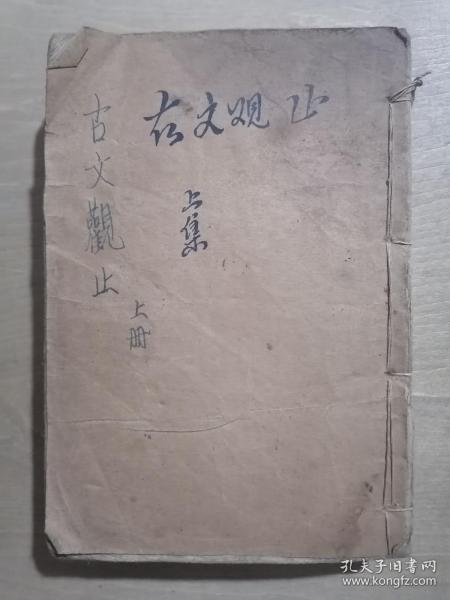 古文觀止
上册
古文观止
上集
孔夫子旧书网
www.kongfz.com